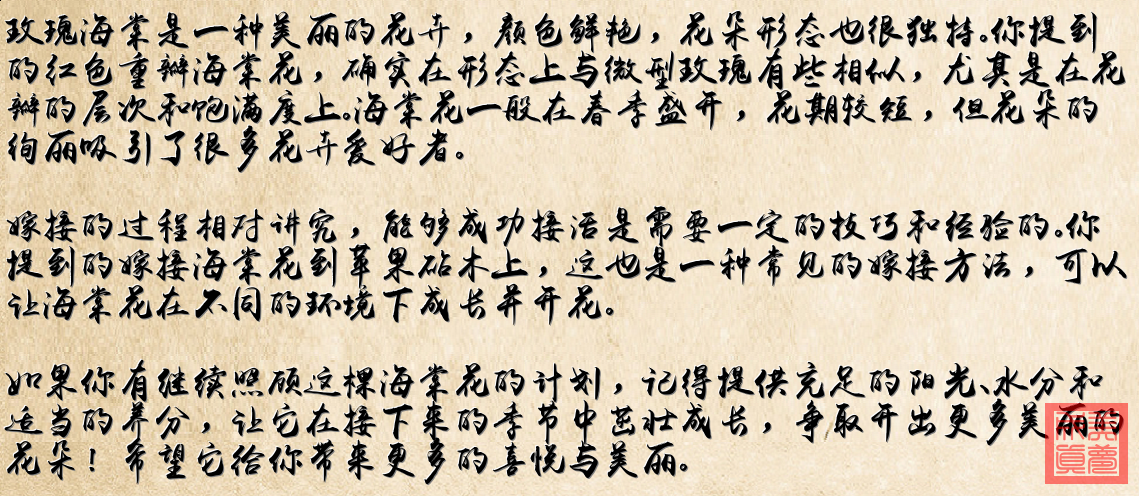 玫瑰海棠是一种美丽的花卉，颜色鲜艳，花朵形态也很独特。你提到
的红色重瓣海棠花，确实在形态上与微型玫瑰有些相似，尤其是在花
瓣的层次和饱满度上。海棠花一般在春季盛开，花期较短，但花朵的
绚丽吸引了很多花卉爱好者。
嫁接的过程相对讲究，能够成功接活是需要一定的技巧和经验的。你
提到的嫁接海棠花到苹果砧木上，这也是一种常见的嫁接方法，可以
让海棠花在不同的环境下成长并开花。
如果你有继续照顾这棵海棠花的计划，记得提供充足的阳光、水分和
适当的养分，让它在接下来的季节中茁壮成长，争取开出更多美丽的
花朵！希望它给你带来更多的喜悦与美丽。